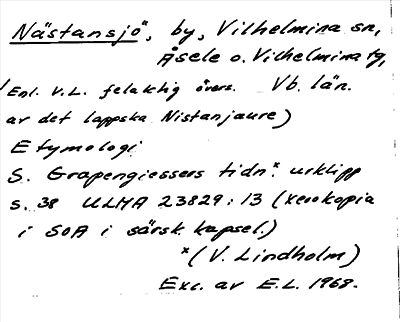 Nästansjö, by, Vilhelmina sn,
Åsele o. Vilhelmina tg,
(Enl. V.L. felaktig övers. Vb. län.
av det lappska Nistanjaure)
Etymologi
S. Grapengiessers tidn.* urklipp
s. 38 ULMA 23829:13 (xerokopia
i SOA i särsk. kapsel.)
*(V. Lindholm)
Exc. av E.L. 1968.